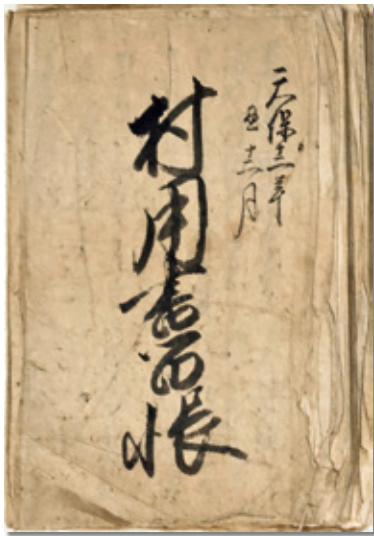 天保十二年
丑十二月
村用書留帳